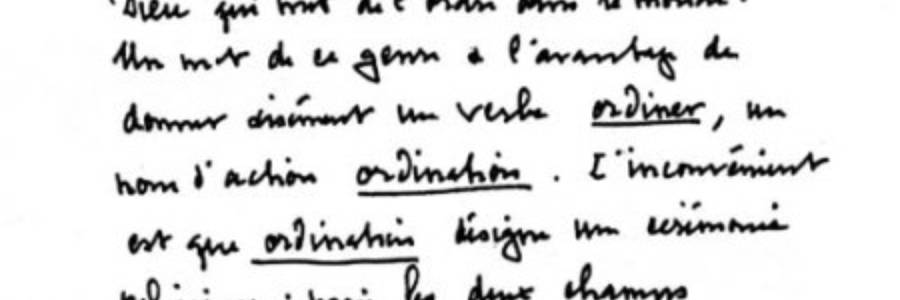 Dieu qui met de l'ordre dans le monde".
Un mot de ce genre a l'avantage de
donner aisément un verbe ordiner, un
nom d'action ordination. L'inconvénient
est que ordination désigne une cérémonie
religieuse ; mais les deux champs